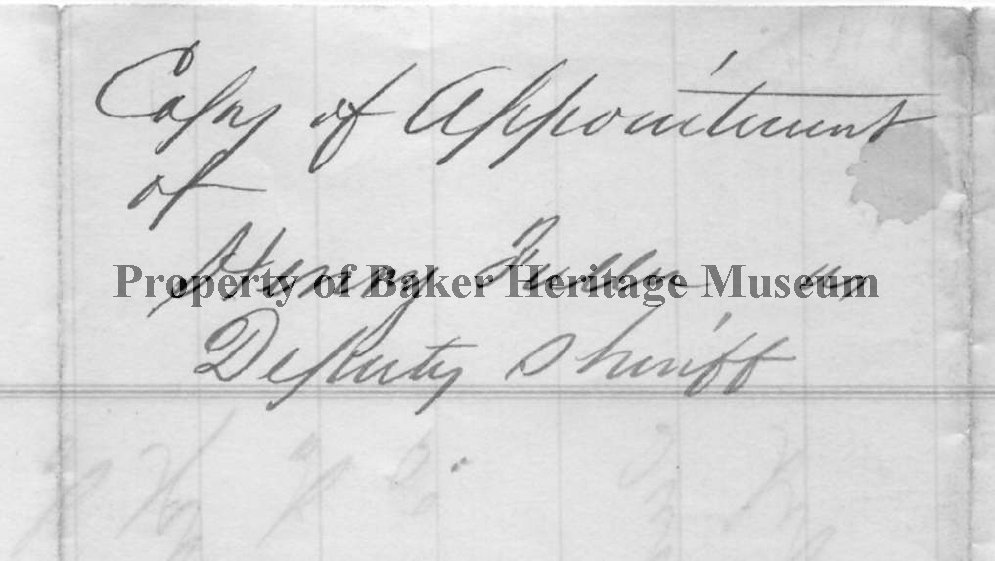 Copy of Appointment
of
Henry Fuller as
Property of Baker Heritage Museum
Deputy Sheriff